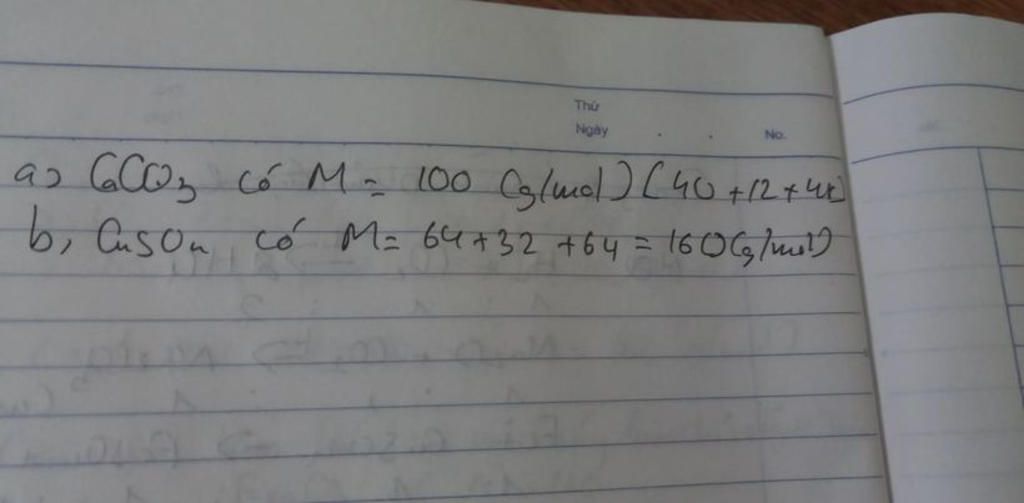 Thứ
Ngày . . No.
a) CaCO3 có M = 100 (g/mol) (40 +12 +48)
b, CuSO4 có M = 64+32 +64 = 160(g/mol)